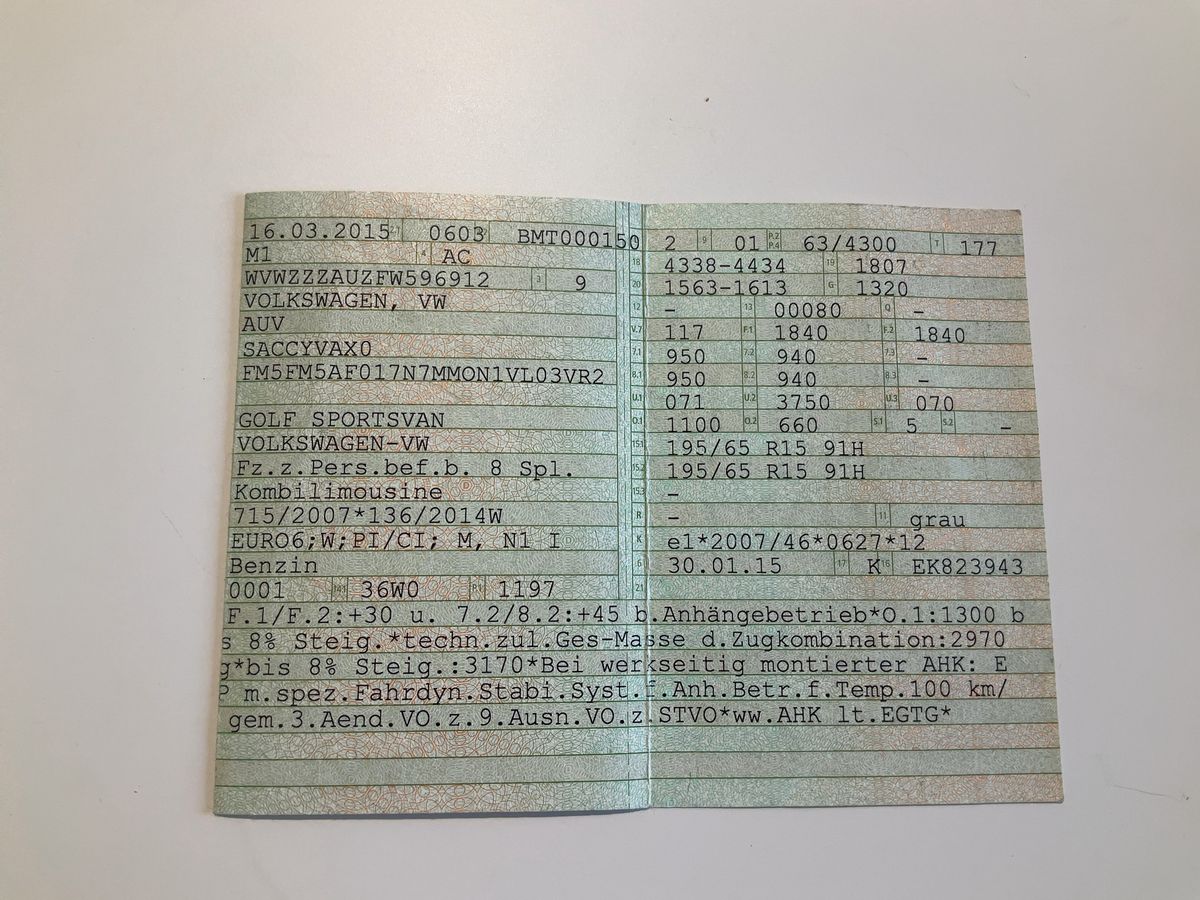 16.03.2015 2.1 0603 BMT000150
M1 4 AC
WVWZZZAUZFW596912 3 9
VOLKSWAGEN, VW
AUV
SACCYVAX0
FM5FM5AF017N7MMON1VL03VR2
GOLF SPORTSVAN
VOLKSWAGEN-VW
Fz.z.Pers.bef.b. 8 Spl.
Kombilimousine
715/2007*136/2014W
EURO6;W;PI/CI; M, N1 I
Benzin
0001 14.1 36W0 P.1 1197
2 9 01 P.2 P.4 63/4300 T 177
18 4338-4434 19 1807
20 1563-1613 G 1320
12 - 13 00080 Q -
V.7 117 F.1 1840 F.2 1840
7.1 950 7.2 940 7.3 -
8.1 950 8.2 940 8.3 -
U.1 071 U.2 3750 U.3 070
O.1 1100 O.2 660 S.1 5 S.2 -
15.1 195/65 R15 91H
15.2 195/65 R15 91H
15.3 -
R - 11 grau
K e1*2007/46*0627*12
6 30.01.15 17 K 16 EK823943
21
F.1/F.2:+30 u. 7.2/8.2:+45 b.Anhängebetrieb*O.1:1300 b
s 8% Steig.*techn.zul.Ges-Masse d.Zugkombination:2970
g*bis 8% Steig.:3170*Bei werkseitig montierter AHK: E
P m.spez.Fahrdyn.Stabi.Syst.f.Anh.Betr.f.Temp.100 km/
gem.3.Aend.VO.z.9.Ausn.VO.z.STVO*ww.AHK lt.EGTG*